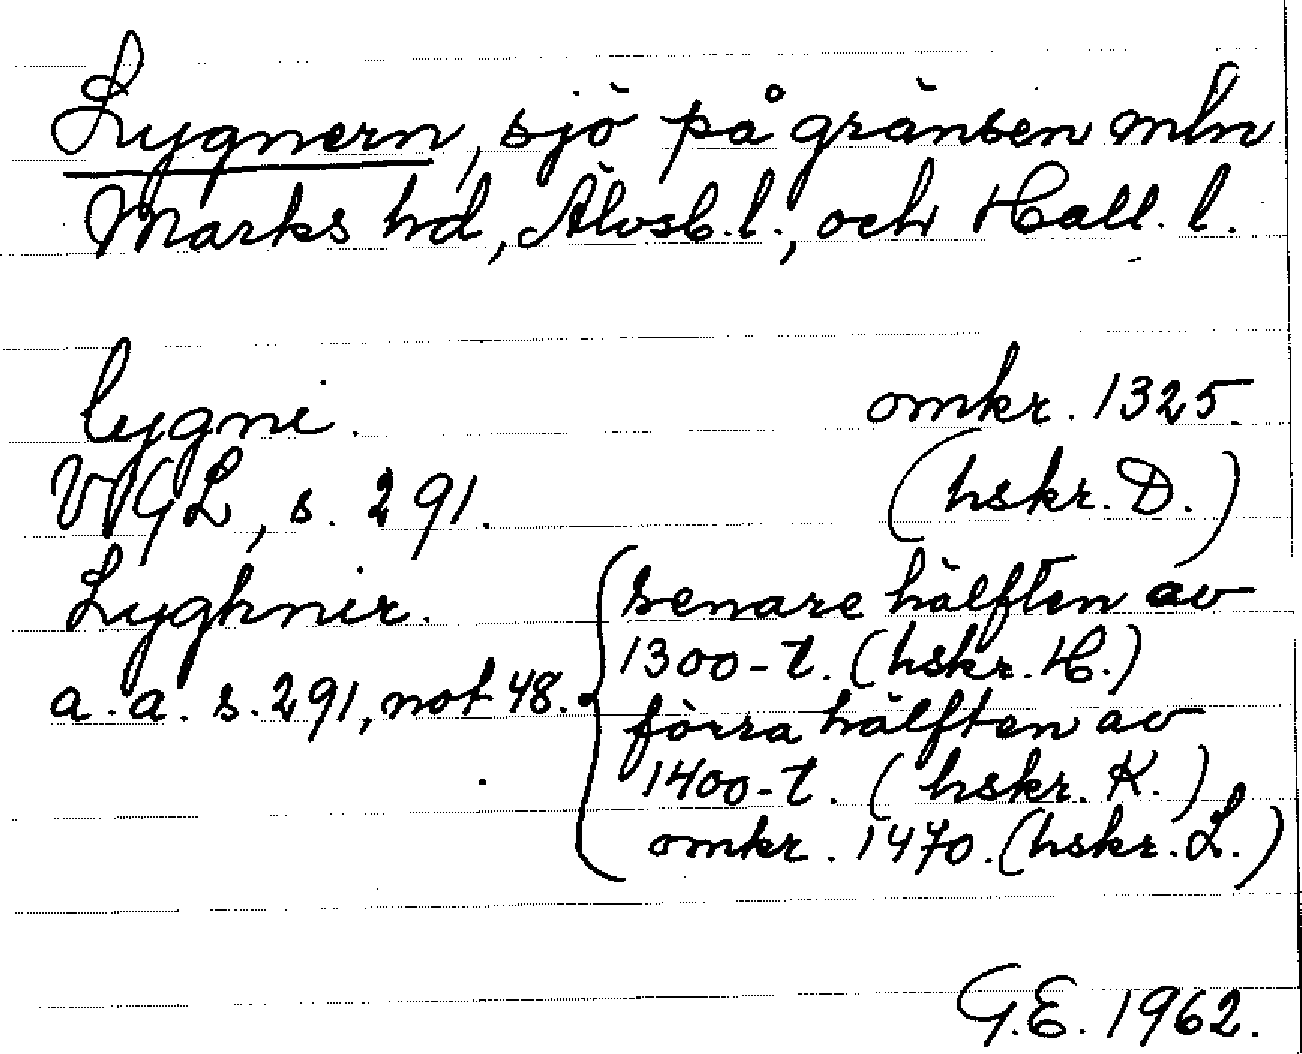 Lygnern, sjö på gränsen mln
Marks hd, Älvsb. l., och Hall. l.
lygni. omkr. 1325.
VGL, s. 291. (hskr. D.)
Lyghnir. senare hälften av
1300-t. (hskr. H.)
a. a. s. 291, not 48. förra hälften av
1400-t. (hskr. K.)
omkr. 1470. (hskr. L.)
G.E. 1962.